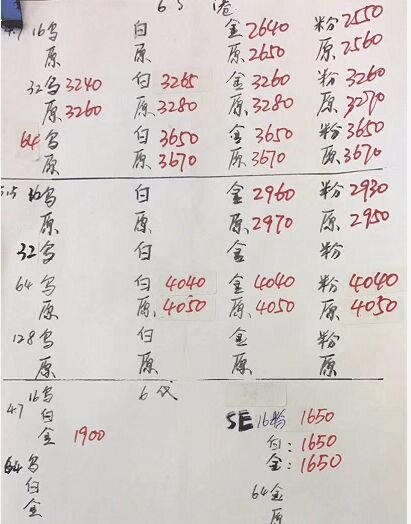 6S 港
4.7 16乌 白 金2640 粉2550
原 原 原2650 原2560
32乌3240 白3265 金3260 粉3260
原3260 原3280 原3280 原3270
64乌 白3650 金3650 粉3650
原 原3670 原3670 原3670
5.5 16乌 白 金2960 粉2930
原 原 原2970 原2950
32乌 白 金 粉
64乌 白4040 金4040 粉4040
原 原4050 原4050 原4050
128乌 白 金 粉
原 原 原 原
4.7 16乌 6代
白 SE 16粉 1650
金 1900 白:1650
64乌 金:1650
白 64金
金 原